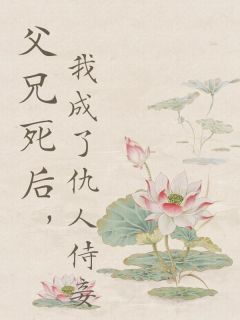 父兄死后，
我成了仇人侍妾